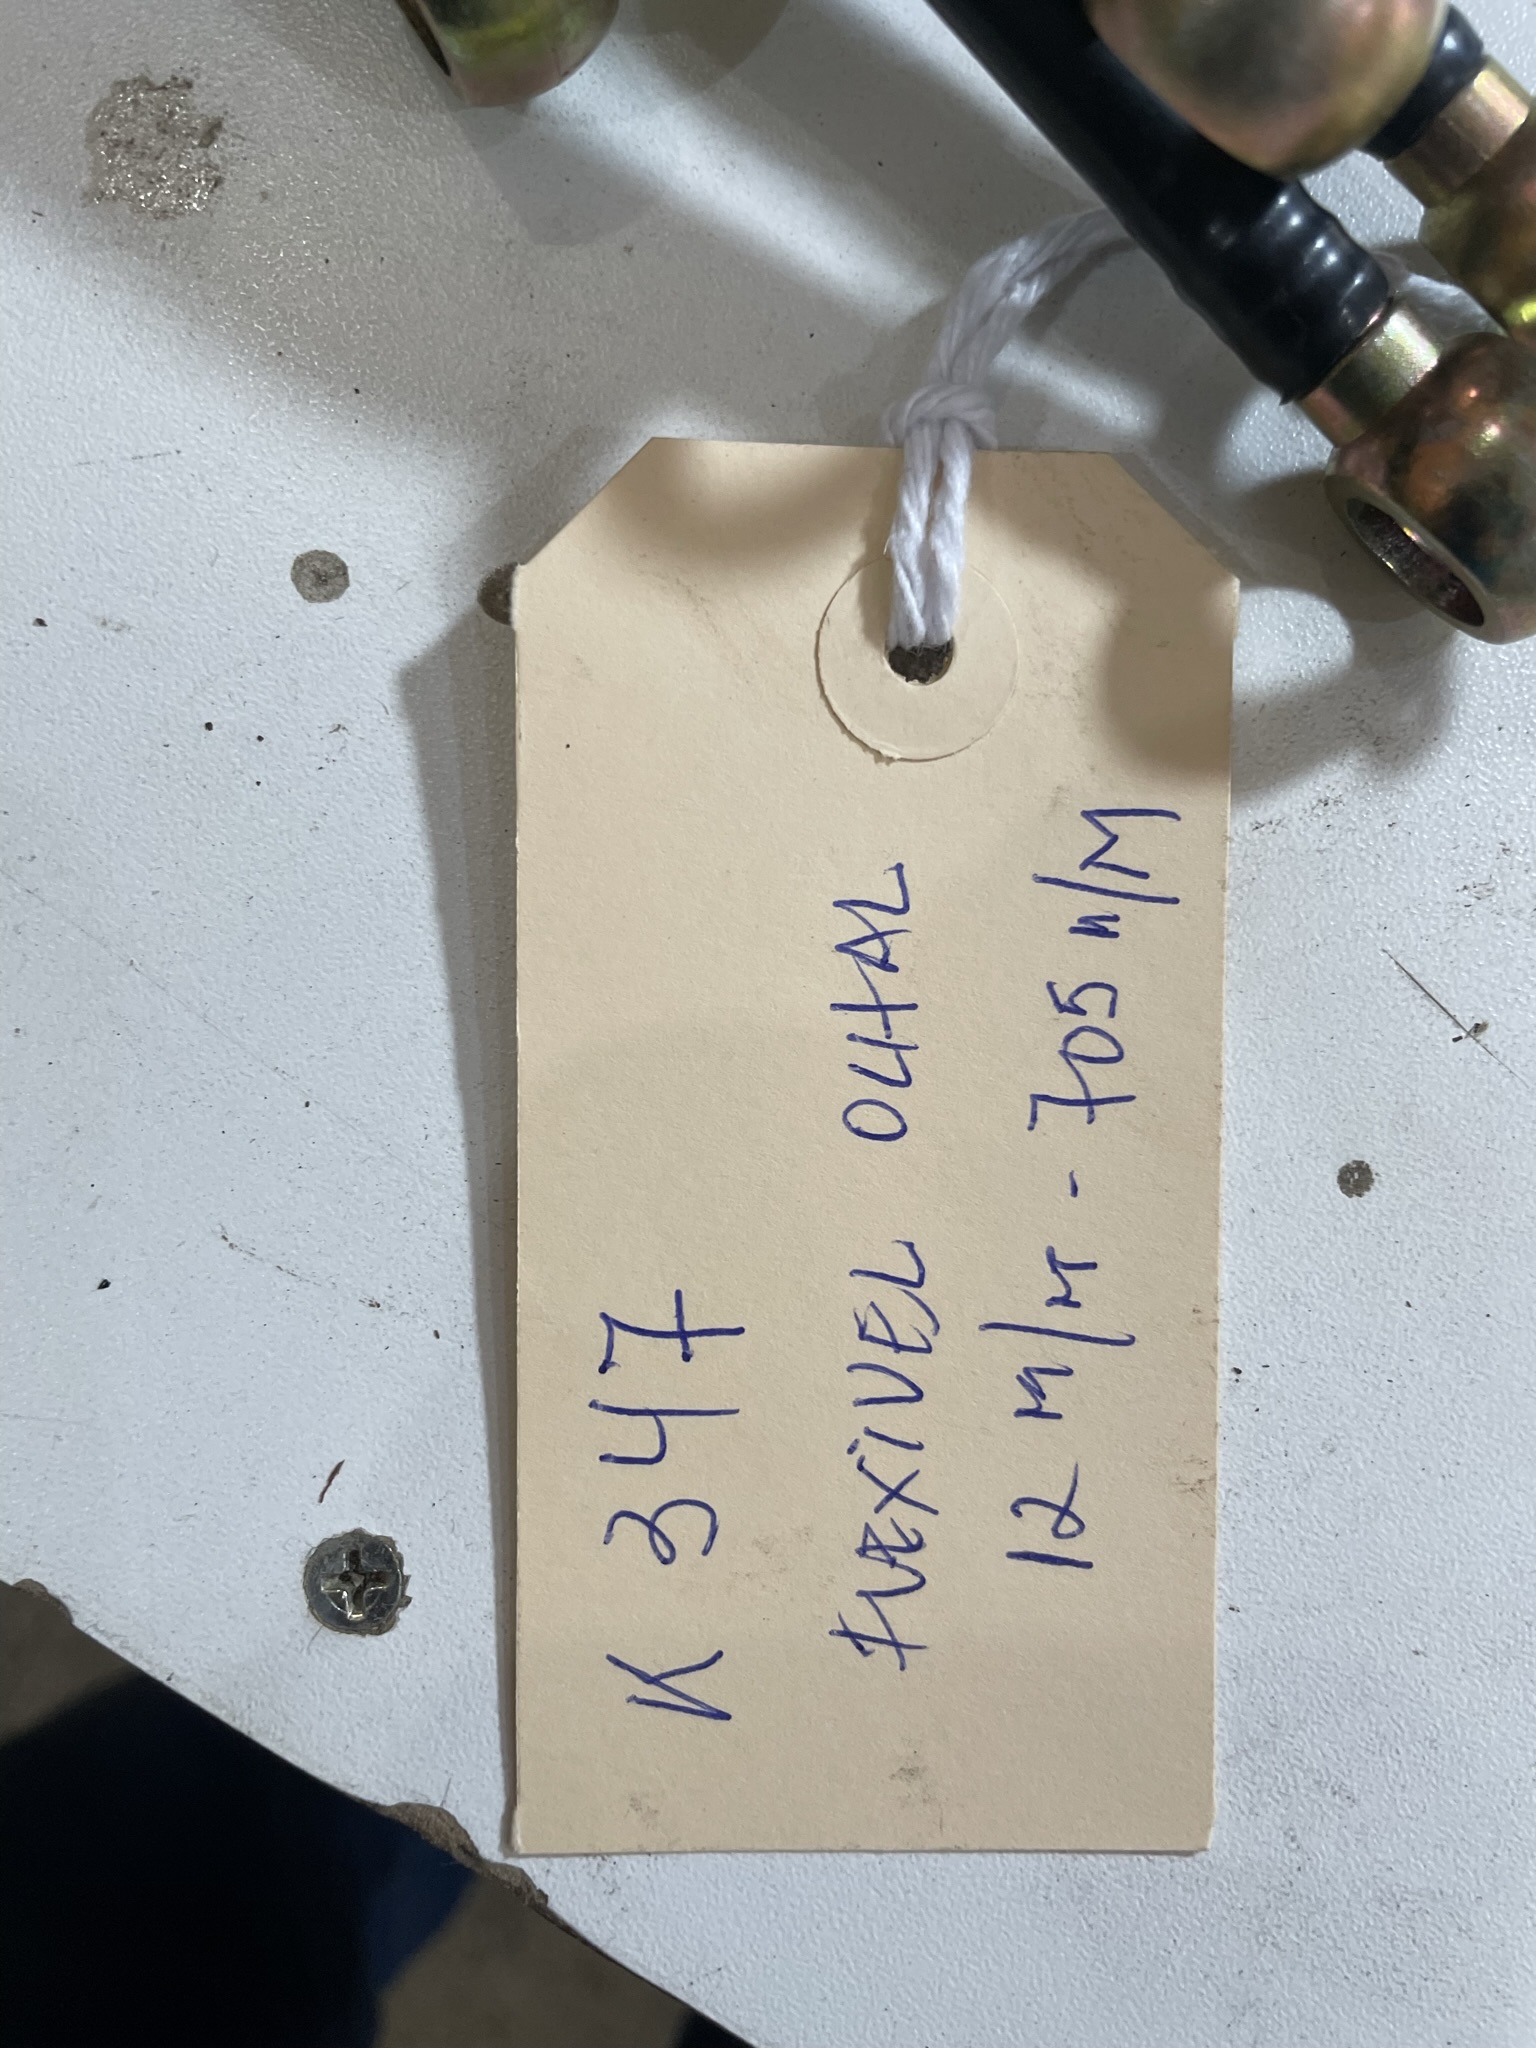 K 347
FLEXIVEL OLHAL
12 m/m - 705 m/M